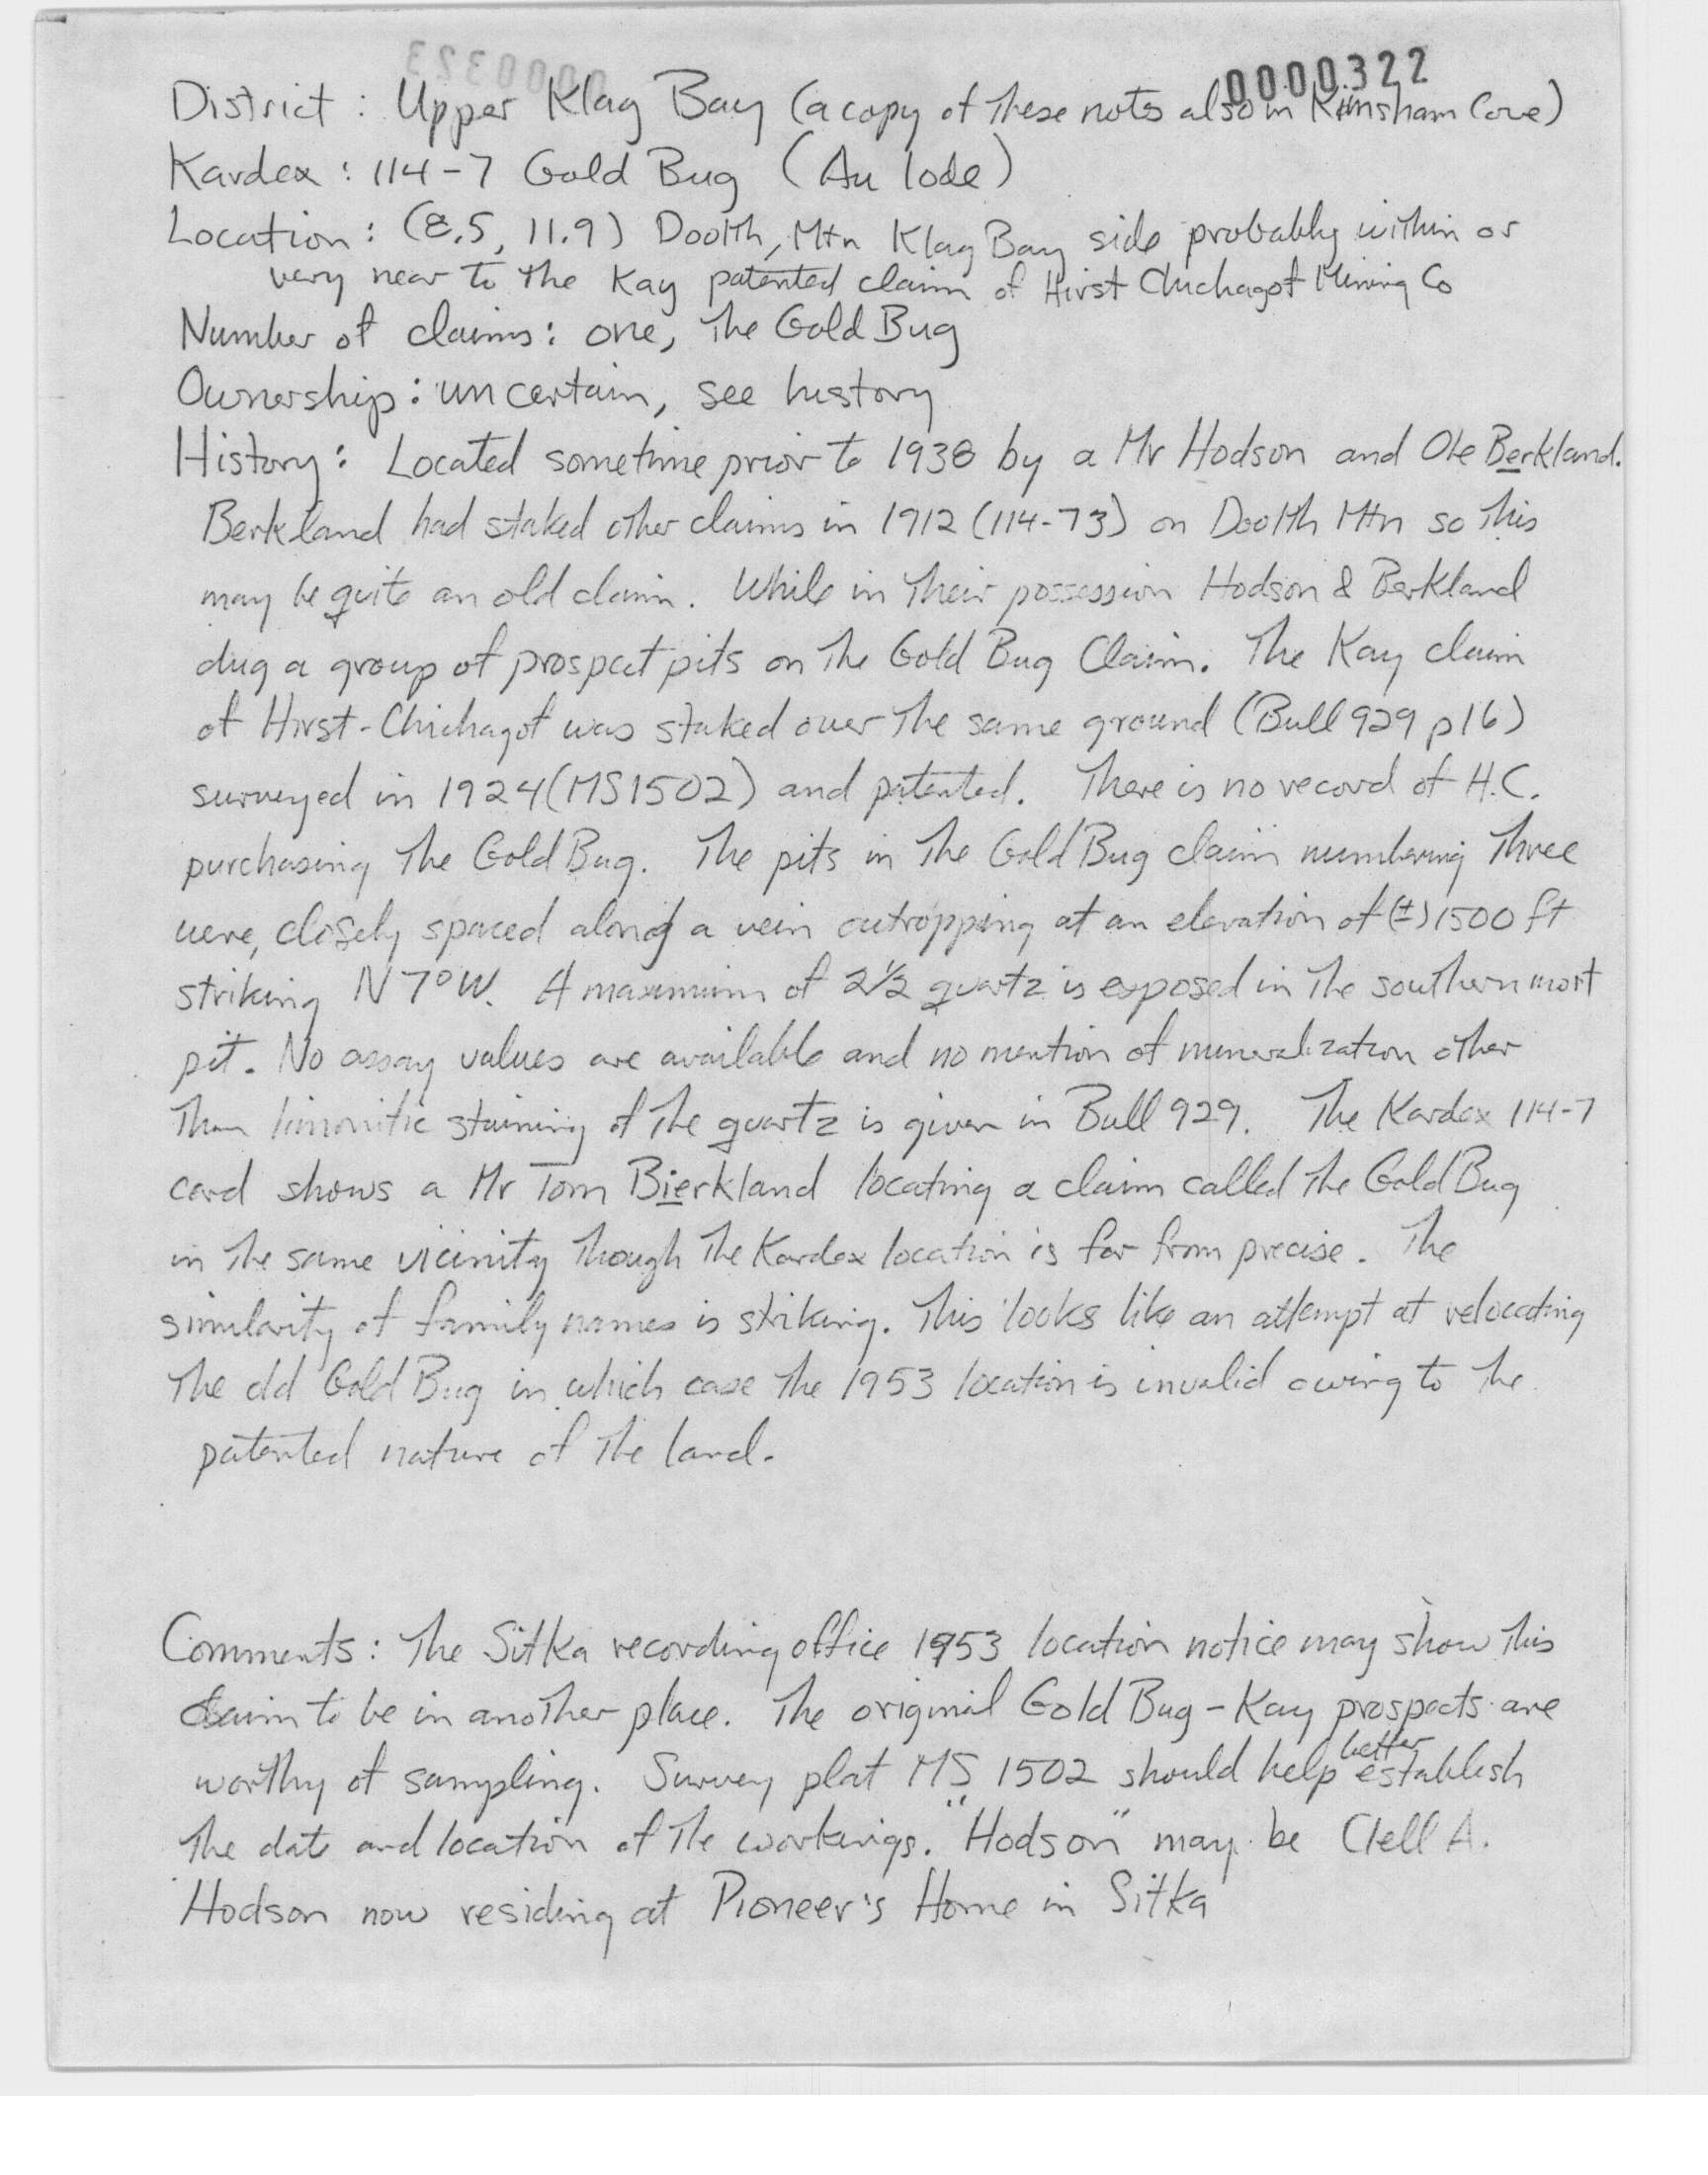 0000322
District : Upper Klag Bay (a copy of these notes also in Kimsham Cove)
Kardex : 114-7 Gold Bug (Au lode)
Location : (8.5, 11.9) Doolth, Mtn Klag Bay side probably within or
very near to the Kay patented claim of Hirst Chichagof Mining Co
Number of claims : one, The Gold Bug
Ownership : uncertain, see history
History : Located sometime prior to 1938 by a Mr Hodson and Ole Berkland.
Berkland had staked other claims in 1912 (114-73) on Doolth Mtn so this
may be quite an old claim. While in their possession Hodson & Berkland
dug a group of prospect pits on the Gold Bug Claim. The Kay claim
of Hirst-Chichagof was staked over the same ground (Bull 929 p16)
surveyed in 1924 (MS1502) and patented. There is no record of H.C.
purchasing the Gold Bug. The pits in the Gold Bug claim numbering three
were, closely spaced along a vein outropping at an elevation of (±) 1500 ft
striking N 7° W. A maximum of 2½ quartz is exposed in the southern most
pit. No assay values are available and no mention of mineralization other
than limonitic staining of the quartz is given in Bull 929. The Kardex 114-7
card shows a Mr Tom Bierkland locating a claim called the Gold Bug
in the same vicinity though the Kardex location is far from precise. The
similarity of family names is striking. This looks like an attempt at relocating
the old Gold Bug in which case the 1953 location is invalid owing to the
patented nature of the land.
Comments : The Sitka recording office 1953 location notice may show this
claim to be in another place. The original Gold Bug - Kay prospects are
worthy of sampling. Survey plat MS 1502 should help better establish
the date and location of the workings. "Hodson" may be Clell A.
Hodson now residing at Pioneer's Home in Sitka